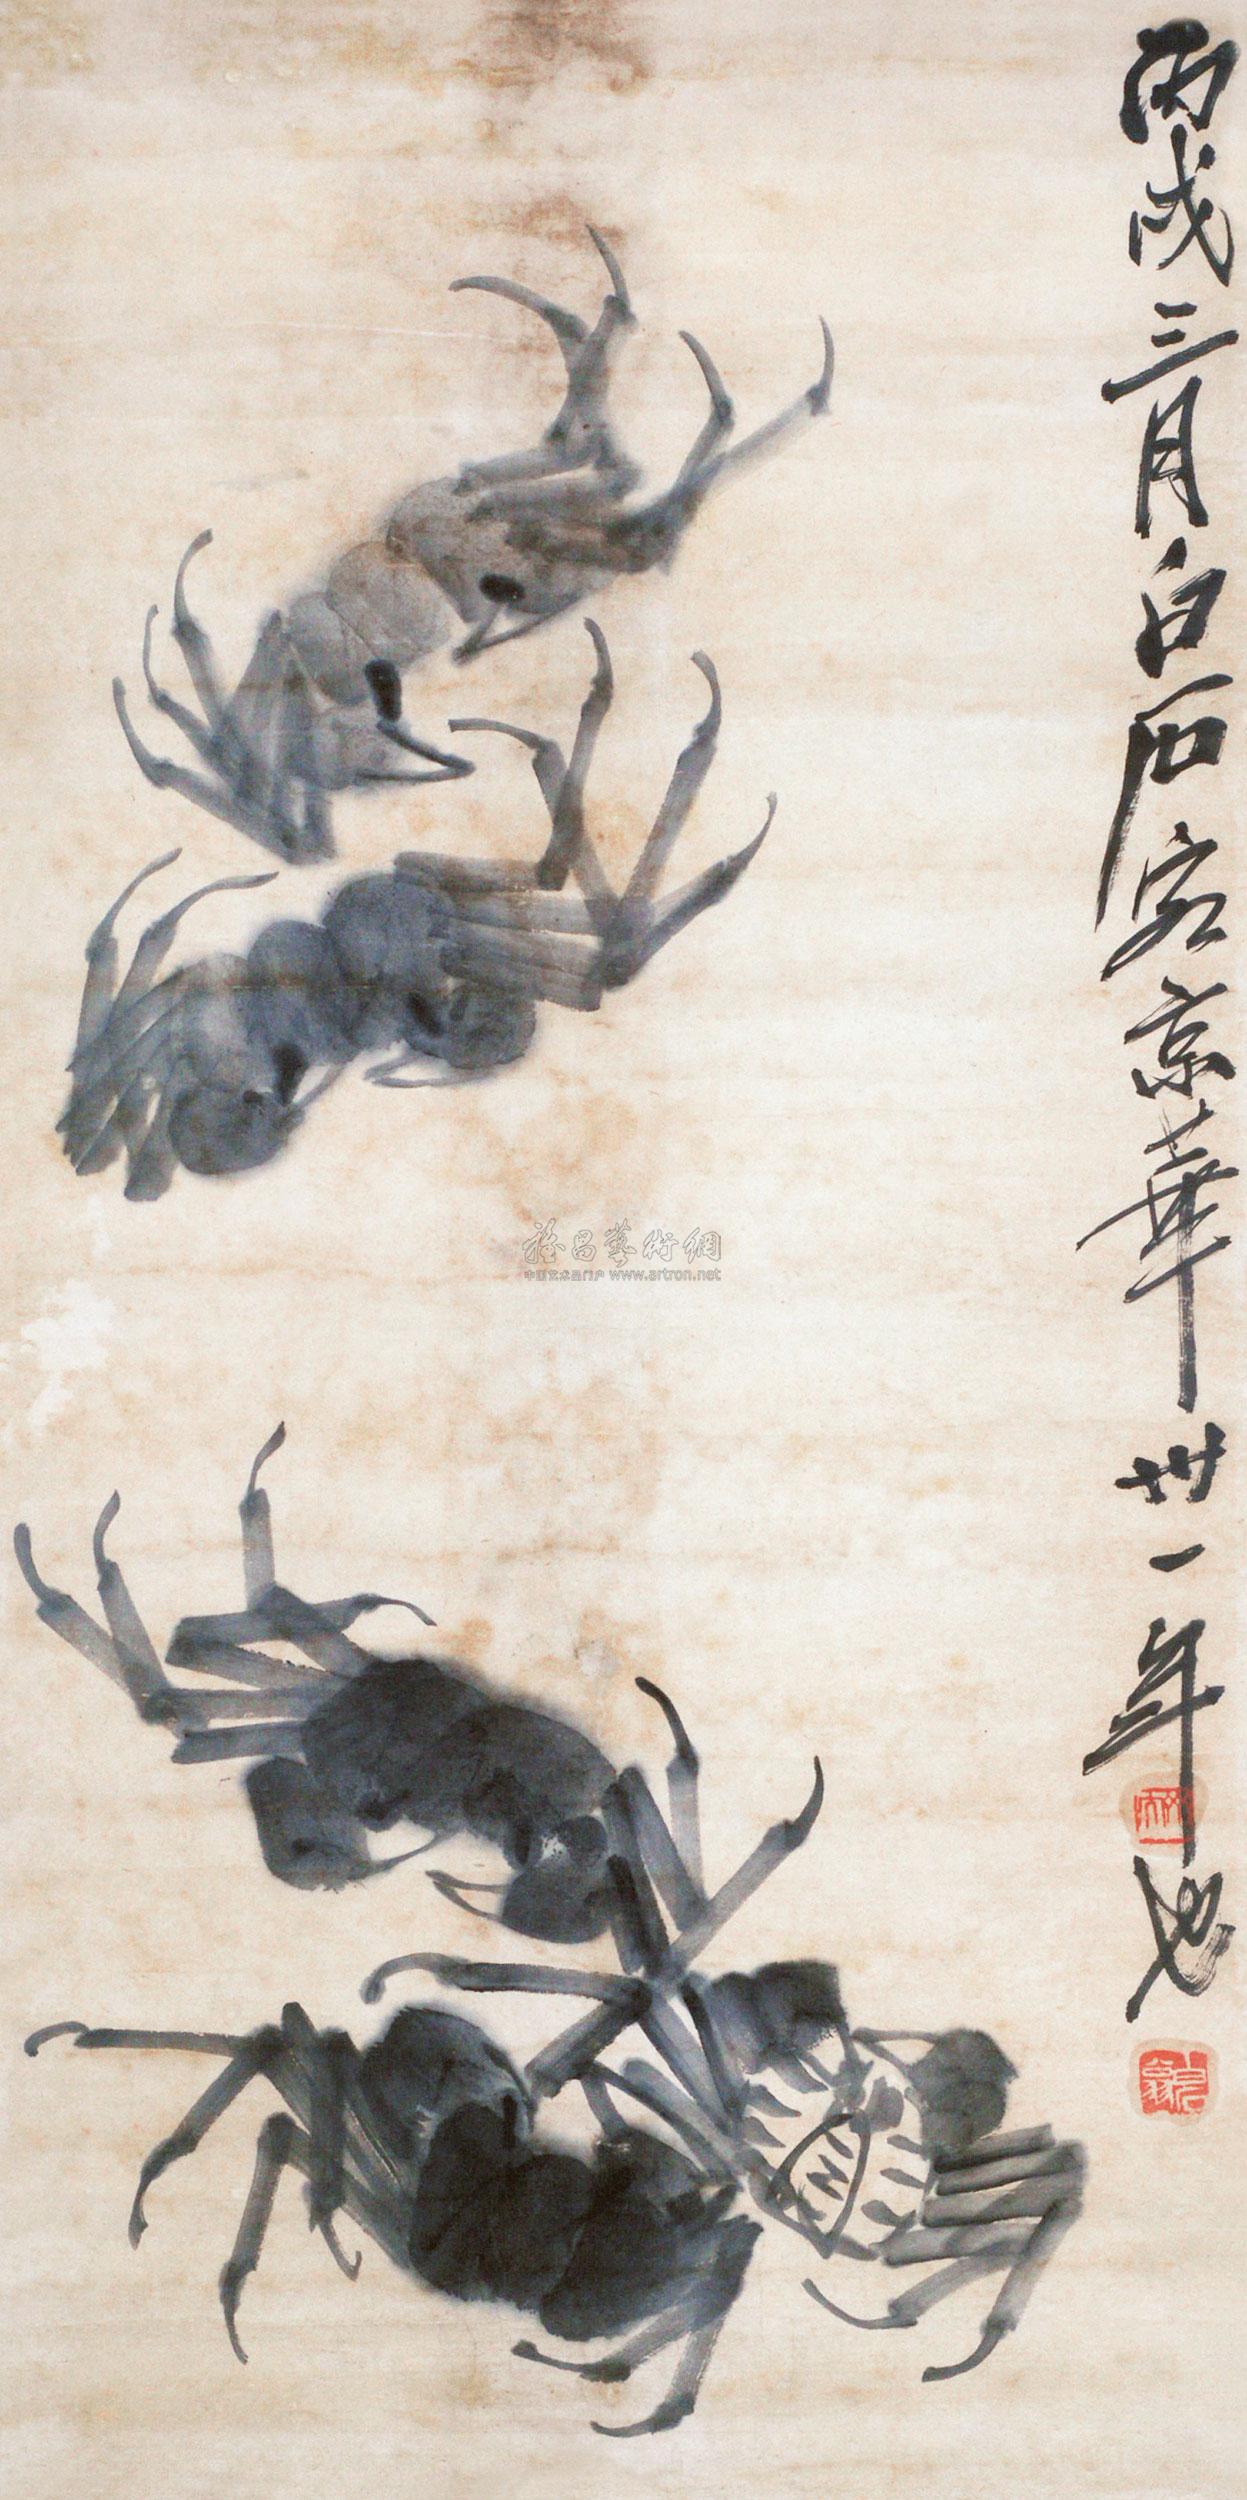 丙戌三月白石客京華卅一年也
雅昌藝術網
中国艺术品门户 www.artron.net